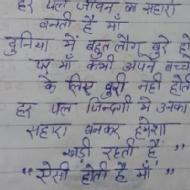 हर पल जीवन का सहारा
बनती है माँ
दुनिया में बहुत लोग बुरे हो
पर माँ कभी अपने बच्चे
के लिए बुरी नही होती
हर पल जिन्दगी में उनका
सहारा बनकर हमेशा
खड़ी रहती हैं
"ऐसी होती है माँ"